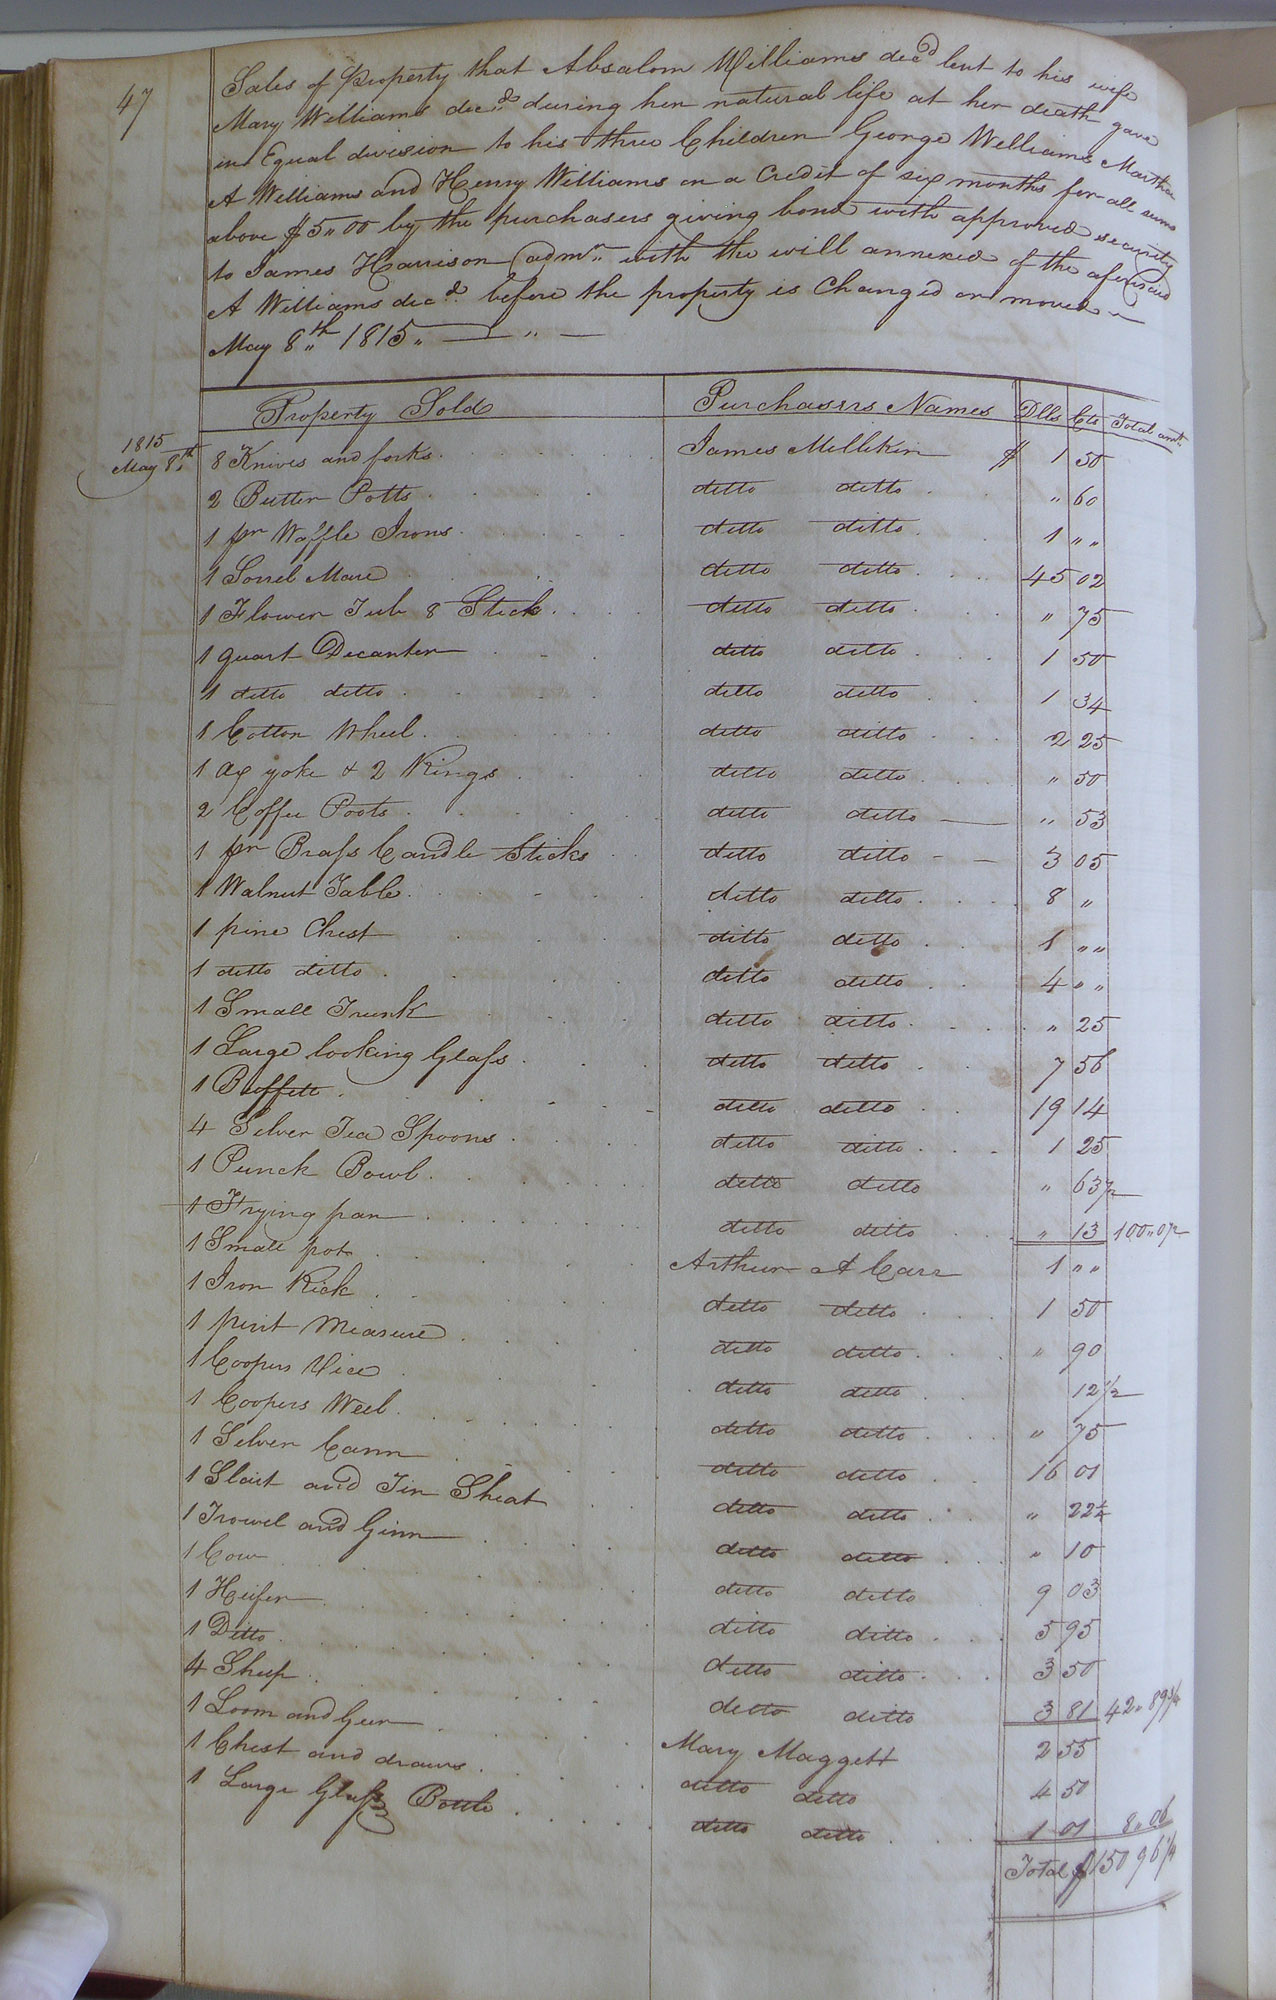 47
Sales of Property that Absalom Williams decd lent to his wife
Mary Williams decd during her natural life at her death gave
in Equal division to his three Children George Williams Martha
A Williams and Henry Williams on a Credit of six months for all sums
above $5"00 by the purchasers giving bond with approved security
to James Harrison admr" with the will annexed of the aforesaid
A Williams decd. before the property is Changed or moved
May 8"th 1815" — " —
Property Sold Purchasers Names Dlls Cts Total amt"
1815
May 8"th 8 Knives and forks James Millikin $ 1 50
2 Butter Potts ditto ditto " 60
1 pr Waffle Irons ditto ditto 1 " "
1 Sorrel Mare ditto ditto 45 02
1 Flower Tub & Stick ditto ditto " 75
1 quart Decanter ditto ditto 1 50
1 ditto ditto ditto ditto 1 34
1 Cotton Wheel ditto ditto 2 25
1 Ox yoke & 2 Rings ditto ditto " 50
2 Coffee Poots ditto ditto " 53
1 pr Brass Candle Sticks ditto ditto 3 05
1 Walnut Table ditto ditto 8 "
1 pine Chest ditto ditto 1 " "
1 ditto ditto ditto ditto 4 " "
1 Small Trunk ditto ditto " 25
1 Large looking Glass ditto ditto 7 56
1 Buffett ditto ditto 19 14
4 Silver Tea Spoons ditto ditto 1 25
1 Punck Bowl ditto ditto " 63½
1 Frying pan ditto ditto " 13 100"0½
1 Small pot Arthur A Carr 1 " "
1 Iron Rick ditto ditto 1 50
1 pint Measure ditto ditto " 90
1 Coopers Vice ditto ditto 12½
1 Coopers Weel ditto ditto " 75
1 Silver Cann ditto ditto 16 01
1 Slait and Tin Sheat ditto ditto " 22¼
1 Trowel and Ginn ditto ditto " 10
1 Cow ditto ditto 9 03
1 Heifer ditto ditto 5 95
1 Ditto ditto ditto 3 50
4 Sheep ditto ditto 3 81 42"89¾
1 Loom and Geer Mary Maggett 2 55
1 Chest and draws ditto ditto 4 50
1 Large Glass Bottle ditto ditto 1 01 8"06
Total $150 96¼